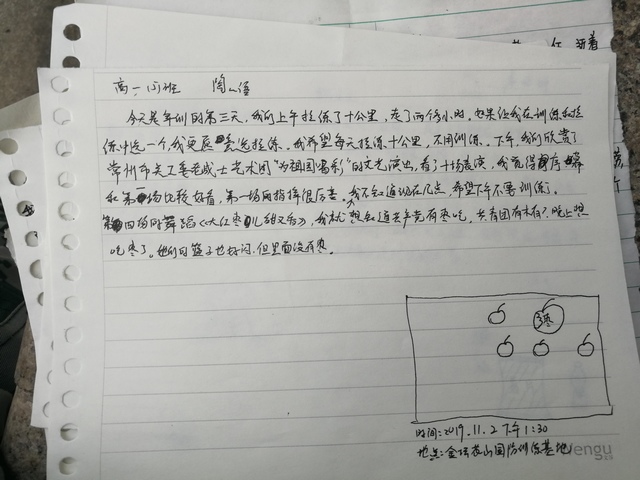 高一(5)班 陶
今天是军训的第三天，我们上午拉练了十公里，走了两个多小时。如果让我在训练和拉
练中选一个，我更愿意选拉练。我希望每天拉练十公里，不用训练。下午，我们欣赏了
常州市关工委老战士艺术团“为祖国喝彩”的文艺演出，看了十场表演，我觉得序幕
和第一场比较好看，第一场的指挥很厉害。我不知道现在几点，希望下午不要训练。
第四场的舞蹈《大红枣儿甜又香》，我就想知道去参竞有枣吃，共有团有木有？晚上想
吃枣了。她们的篮子也好闪，但里面没有枣。
枣
时间：2019.11.2 下午1:30
地点：金坛茅山国防训练基地
engu